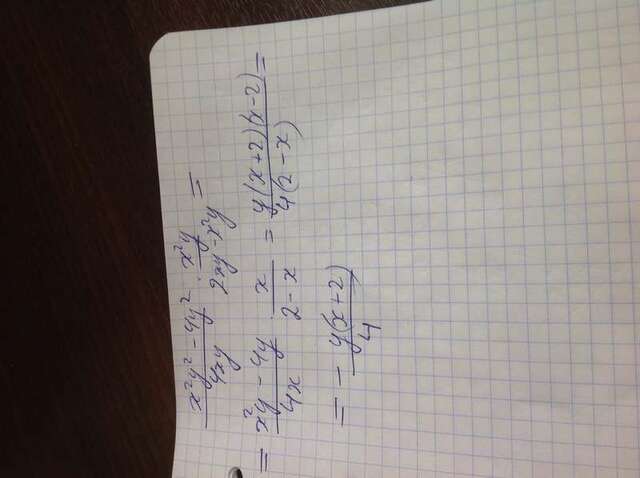 (x²y² - 4y²)/(4xy) · (x²y)/(2xy - x²y) =
= (x²y - 4y)/(4x) · x/(2 - x) = (y(x+2)(x-2))/(4(2-x)) =
= - (y(x+2))/4